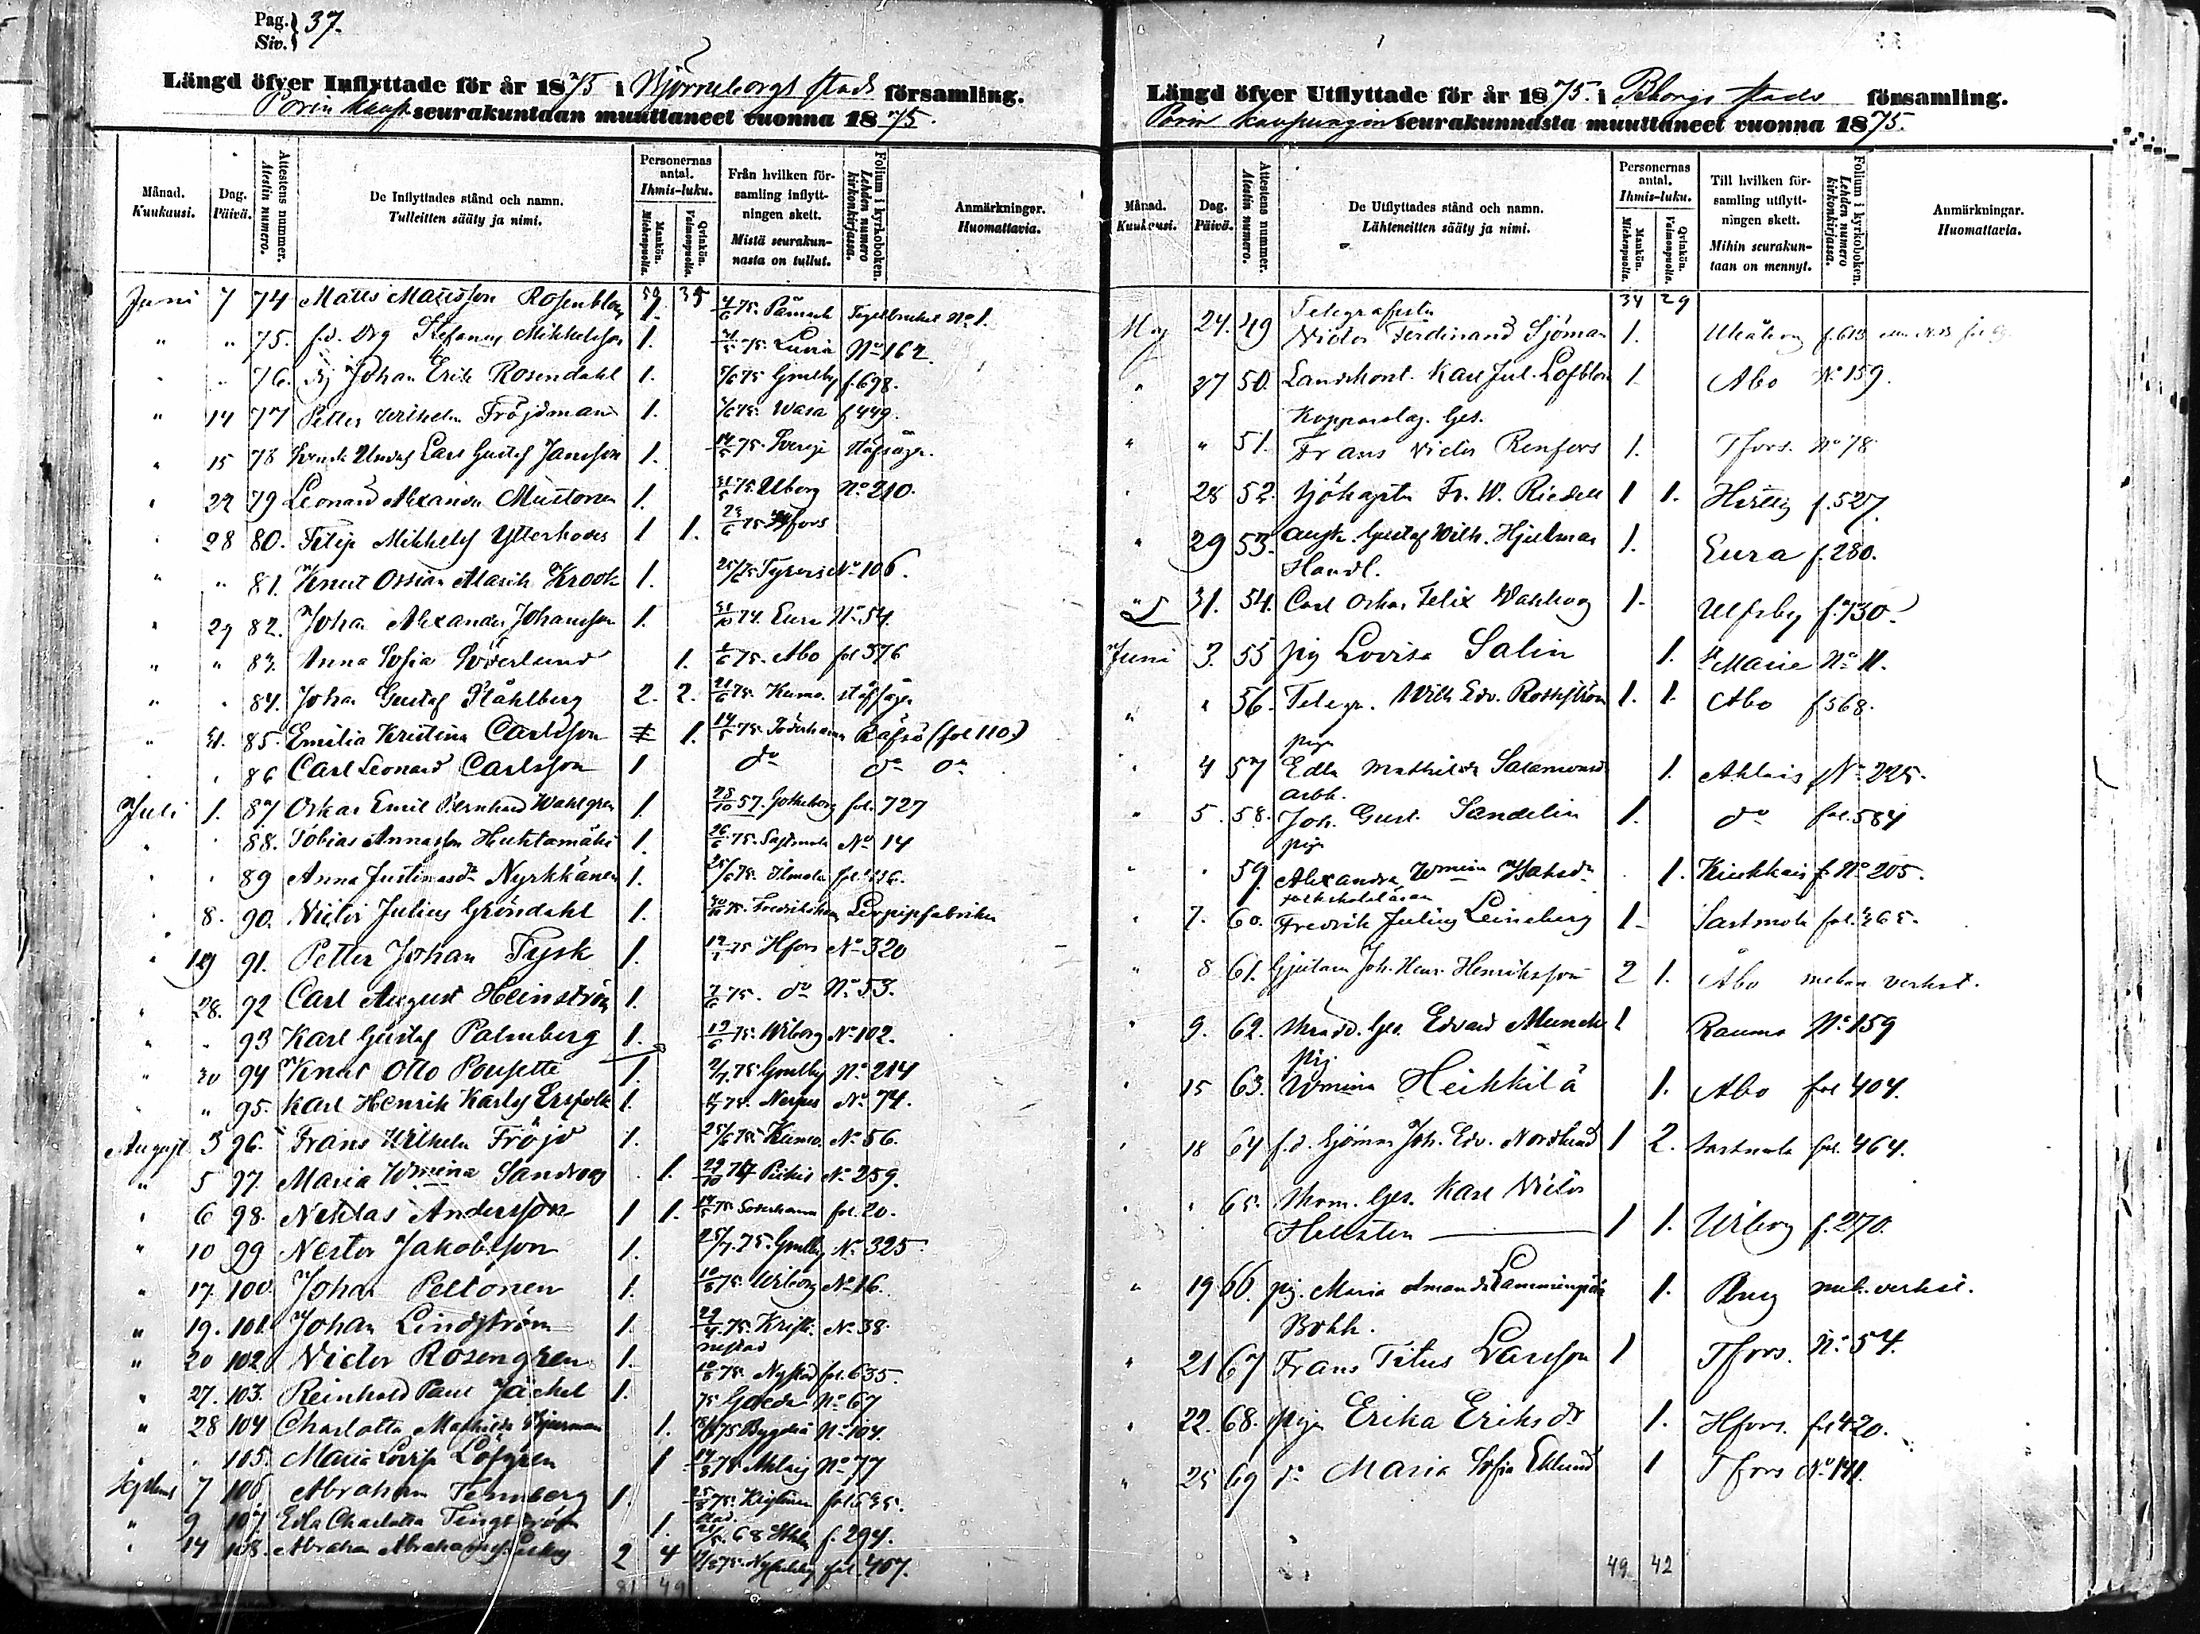 Pag. Siv. } 37.
Längd öfver Inflyttade för år 1875 i Björneborgs stads församling.
Porin kaup seurakuntaan muuttaneet vuonna 1875.
Månad. Kuukausi. | Dag. Päivä. | Attestens nummer. Atestin numero. | De Inflyttades stånd och namn. Tulleitten sääty ja nimi. | Personernas antal. Ihmis-luku. Mankön. Miehenpuolta. Qvinkön. Vaimonpuolta. | Från hvilken församling inflyttningen skett. Mistä seurakunnasta on tullut. | Folium i kyrkoboken. Lehden numero kirkonkirjassa. | Anmärkningar. Huomattavia.
59 35
Juni 7 74 Matts Mattsson Rosenblom 1. 4/6 75. Påmark Tegelbruket No 1.
" " 75. f.d. Drg Stefanus Mikkelsson 1. 75. Luvia No 162.
" " 76. Johan Erik Rosendahl 1. 75 Gmlby f. 698.
" 14 77 Petter Wilhelm Fröjdman 1. 75. Wasa f 449.
" 15 78 Lars Gustaf Jansson 1. 75. Sverige Råfsö
" 22 79 Leonard Alexander Mustonen 1. 75. Uborg No 210.
" 28 80. Filip Mikkels Ytterhoves 1 1. 75 Hfors
" " 81. Knut Ossian Alarik Krook 1. 75. Tyrvis No 106.
" 29 82. Johan Alexander Johansson 1. 31/10 74. Eura No 54.
" " 83. Anna Sofia Söderlund 1. 75. Åbo fol 376
" " 84. Johan Gustaf Ståhlberg 2. 2. 75. Kumo.
" 31. 85. Emilia Kristina Carlsson 1. 14/5 75. Söderhamn Räfsö (fol 110)
" " 86 Carl Leonard Carlsson 1 do do do
Juli 1. 87 Oskar Emil Bernhard Wahlgren 1. 28/10 57. Gotheborg fol. 727
" " 88. Tobias Annasson Huhtamäki 1. 26/6 75. Sastmola No 14
" " 89 Anna Justinasdr Nyrkkänen 1. 75. Ilmola fol. 116.
" 8. 90. Victor Julius Gröndahl 1. 75. Fredrikshamn Lerpipfabriken
" 19 91. Petter Johan Tysk 1. 75 Hfors No 320
" 28. 92 Carl August Heinström 1. 7/6 75. do No 53.
" " 93 Karl Gustaf Palmberg 1. 75. Wiborg No 102.
" 30 94 Knut Otto Pousette 1. 75 Gmlby No 214
" " 95. Karl Henrik Karls Ersfolk 1. 75. Nerpes No 74.
August 3 96. Frans Wilhelm Fröjd 1. 25/6 75. Kumo. No 56.
" 5 97. Maria Wmina Sandroos 1. 29/10 74 Piikis No 259.
" 6 98. Niklas Andersson 1 1. 14/5 75 Söderhamn fol. 20.
" 10 99 Nestor Jakobsson 1. 25/7. 75. Gmlby No 325.
" 17 100 Johan Peltonen 1. 10/8 75. Wiborg No 16.
" 19. 101. Johan Lindström 1. 29/4 75. Kristinestad No 38.
" 20 102. Victor Rosengren 1. 75. Nystad fol. 635.
" 27. 103. Reinhold Paul Jäckel 1. 75 Goeda No 67
" 28 104 Charlotta Mathilda 1. 75 Bygdeå No 104.
" " 105. Maria Lovisa Löfgren 1 75 Ahlais No 77
Septemb 7 106 Abraham Tennberg 1. 25/8 75. Kristinestad fol 635.
" 9 107. Eda Charlotta Tengström 1. 68 f. 294.
" 14 108. Abraham Abrahams 2 4 75. Nykarleby fol. 407.
81 49
Längd öfver Utflyttade för år 1875. i Bborgs stads församling.
Porin kaupungin seurakunnasta muuttaneet vuonna 1875.
Månad. Kuukausi. | Dag. Päivä. | Attestens nummer. Atestin numero. | De Utflyttades stånd och namn. Lähteneitten sääty ja nimi. | Personernas antal. Ihmis-luku. Mankön. Miehenpuolta. Qvinkön. Vaimonpuolta. | Till hvilken församling utflyttningen skett. Mihin seurakuntaan on mennyt. | Folium i kyrkoboken. Lehden numero kirkonkirjassa. | Anmärkningar. Huomattavia.
34 29
Telegrafisten
Maj 24. 49 Victor Ferdinand Sjöman 1. Uleåborg f. 613
" 27 50. Landtkont. Karl Jul. Löfblom 1. Åbo No 159.
Kopparslag. Ges.
" " 51. Frans Victor Renfors 1. Tfors. No 78
" 28 52. Sjökapten Fr. W. Riedell 1 1. f. 527.
" 29 53. Gustaf Wilh. Hjulman 1. Eura f. 280.
Handl.
" 31. 54. Carl Oskar Felix Wahlroos 1. Ulfsby f. 730.
Juni 3. 55 pig Lovisa Salin 1. St Marie No 11.
" " 56. Telegr. Wilh. Edv. Rothström 1. 1. Åbo f 568.
piga
" 4 57 Edla Mathilda Salamonsdr 1. Ahlais No 225.
arbk.
" 5. 58. Joh. Gust. Sandelin 1. do fol. 584
piga
" " 59. Alexandra Wmina Isaksdr 1. Kiukkais f. No 205.
folkskolelärar
" 7. 60. Fredrik Julius Leineberg 1. Sastmola fol. 365.
" 8 61. Gjutaren Joh. Henr. Henriksson 2 1. Åbo mekan verkst.
" 9. 62. Ges. Edvard Munck 1 Rauma No 159
pig
" 15 63. Wmina Heikkilä 1. Åbo fol 404.
" 18 64 f.d. Sjöman Joh. Edv. Nordlund 1 2. Sastmola fol. 464.
" " 65. Ges. Karl Victor
Hellsten 1 1. Wiborg f. 270.
" 19 66. pig. Maria Amanda Lammimpää 1. mek. verkst.
Bokh.
" 21 67 Frans Titus Larsson 1 Tfors. No 54.
" 22. 68. piga Erika Eriksdr 1. Hfors. fol 420.
" 25 69 do Maria Sofia Eklund 1 Tfors No 141.
49 42